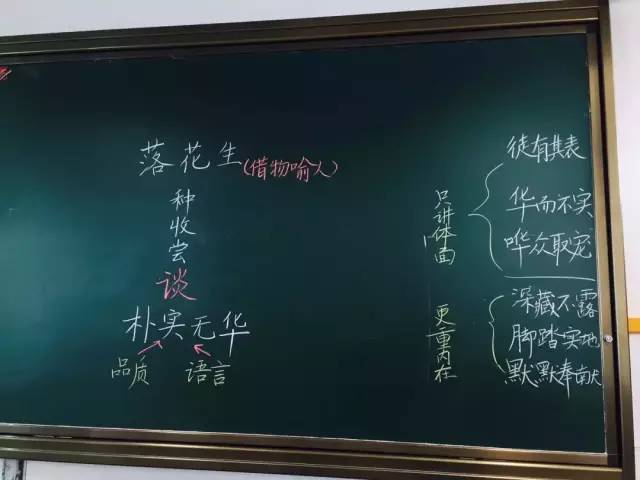 落花生(借物喻人)
种
收
尝
谈
朴实无华
品质 语言
只讲体面
徒有其表
华而不实
哗众取宠
更重内在
深藏不露
脚踏实地
默默奉献